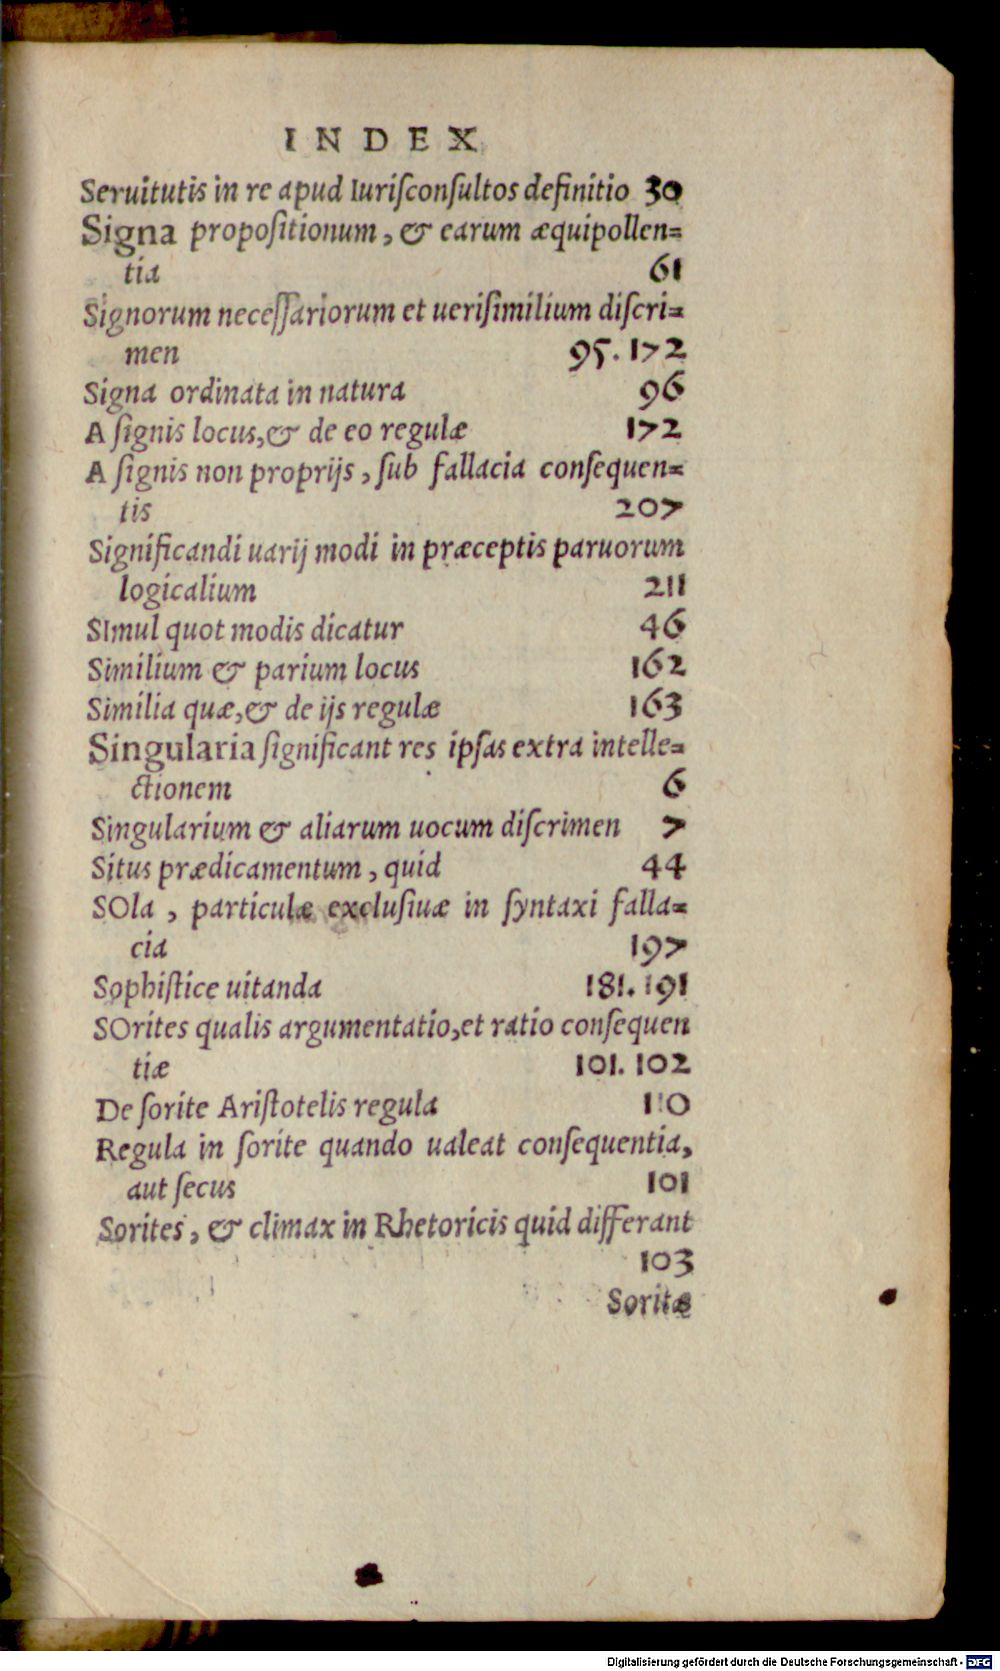 INDEX
Seruitutis in re apud Iuriſconſultos definitio 30
Signa propoſitionum, & earum æquipollen=
tia 61
Signorum neceſſariorum et ueriſimilium diſcri=
men 95. 172
Signa ordinata in natura 96
A ſignis locus, & de eo regulæ 172
A ſignis non proprijs, ſub fallacia conſequen=
tis 207
Significandi uarij modi in præceptis paruorum
logicalium 211
SImul quot modis dicatur 46
Similium & parium locus 162
Similia quæ, & de ijs regulæ 163
Singularia ſignificant res ipſas extra intelle=
ctionem 6
Singularium & aliarum uocum diſcrimen 7
Situs prædicamentum, quid 44
SOla, particulæ excluſiuæ in ſyntaxi falla=
cia 197
Sophiſtice uitanda 181. 191
SOrites qualis argumentatio, et ratio conſequen
tiæ 101. 102
De ſorite Ariſtotelis regula 110
Regula in ſorite quando ualeat conſequentia,
aut ſecus 101
Sorites, & climax in Rhetoricis quid differant
103
Soritæ
Digitalisierung gefördert durch die Deutsche Forschungsgemeinschaft - DFG